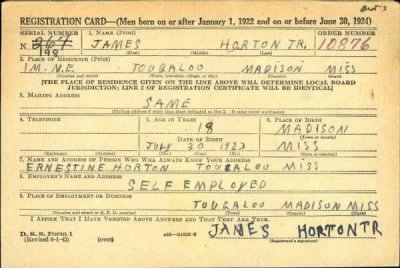 REGISTRATION CARD—(Men born on or after January 1, 1922 and on or before June 30, 1924)
SERIAL NUMBER 1. NAME (Print) ORDER NUMBER
N. 267 JAMES HORTON JR. 10876
198 (First) (Middle) (Last)
2. PLACE OF RESIDENCE (Print)
1 M. N.E. TOUGALOO MADISON MISS
(Number and street) (Town, township, village, or city) (County) (State)
[THE PLACE OF RESIDENCE GIVEN ON THE LINE ABOVE WILL DETERMINE LOCAL BOARD
JURISDICTION; LINE 2 OF REGISTRATION CERTIFICATE WILL BE IDENTICAL]
3. MAILING ADDRESS
SAME
(Mailing address if other than place indicated on line 2. If same insert word same)
4. TELEPHONE 5. AGE IN YEARS 6. PLACE OF BIRTH
18 MADISON
DATE OF BIRTH (Town or county)
JULY 30 1923 MISS
(Exchange) (Number) (Mo.) (Day) (Yr.) (State or country)
7. NAME AND ADDRESS OF PERSON WHO WILL ALWAYS KNOW YOUR ADDRESS
ERNESTINE HORTON TOUGALOO MISS
8. EMPLOYER'S NAME AND ADDRESS
SELF EMPLOYED
9. PLACE OF EMPLOYMENT OR BUSINESS
TOUGALOO MADISON MISS
(Number and street or R. F. D. number) (Town) (County) (State)
I AFFIRM THAT I HAVE VERIFIED ABOVE ANSWERS AND THAT THEY ARE TRUE.
D. S. S. Form 1 JAMES HORTON JR
(Revised 6-1-42) (over) (Registrant's signature)